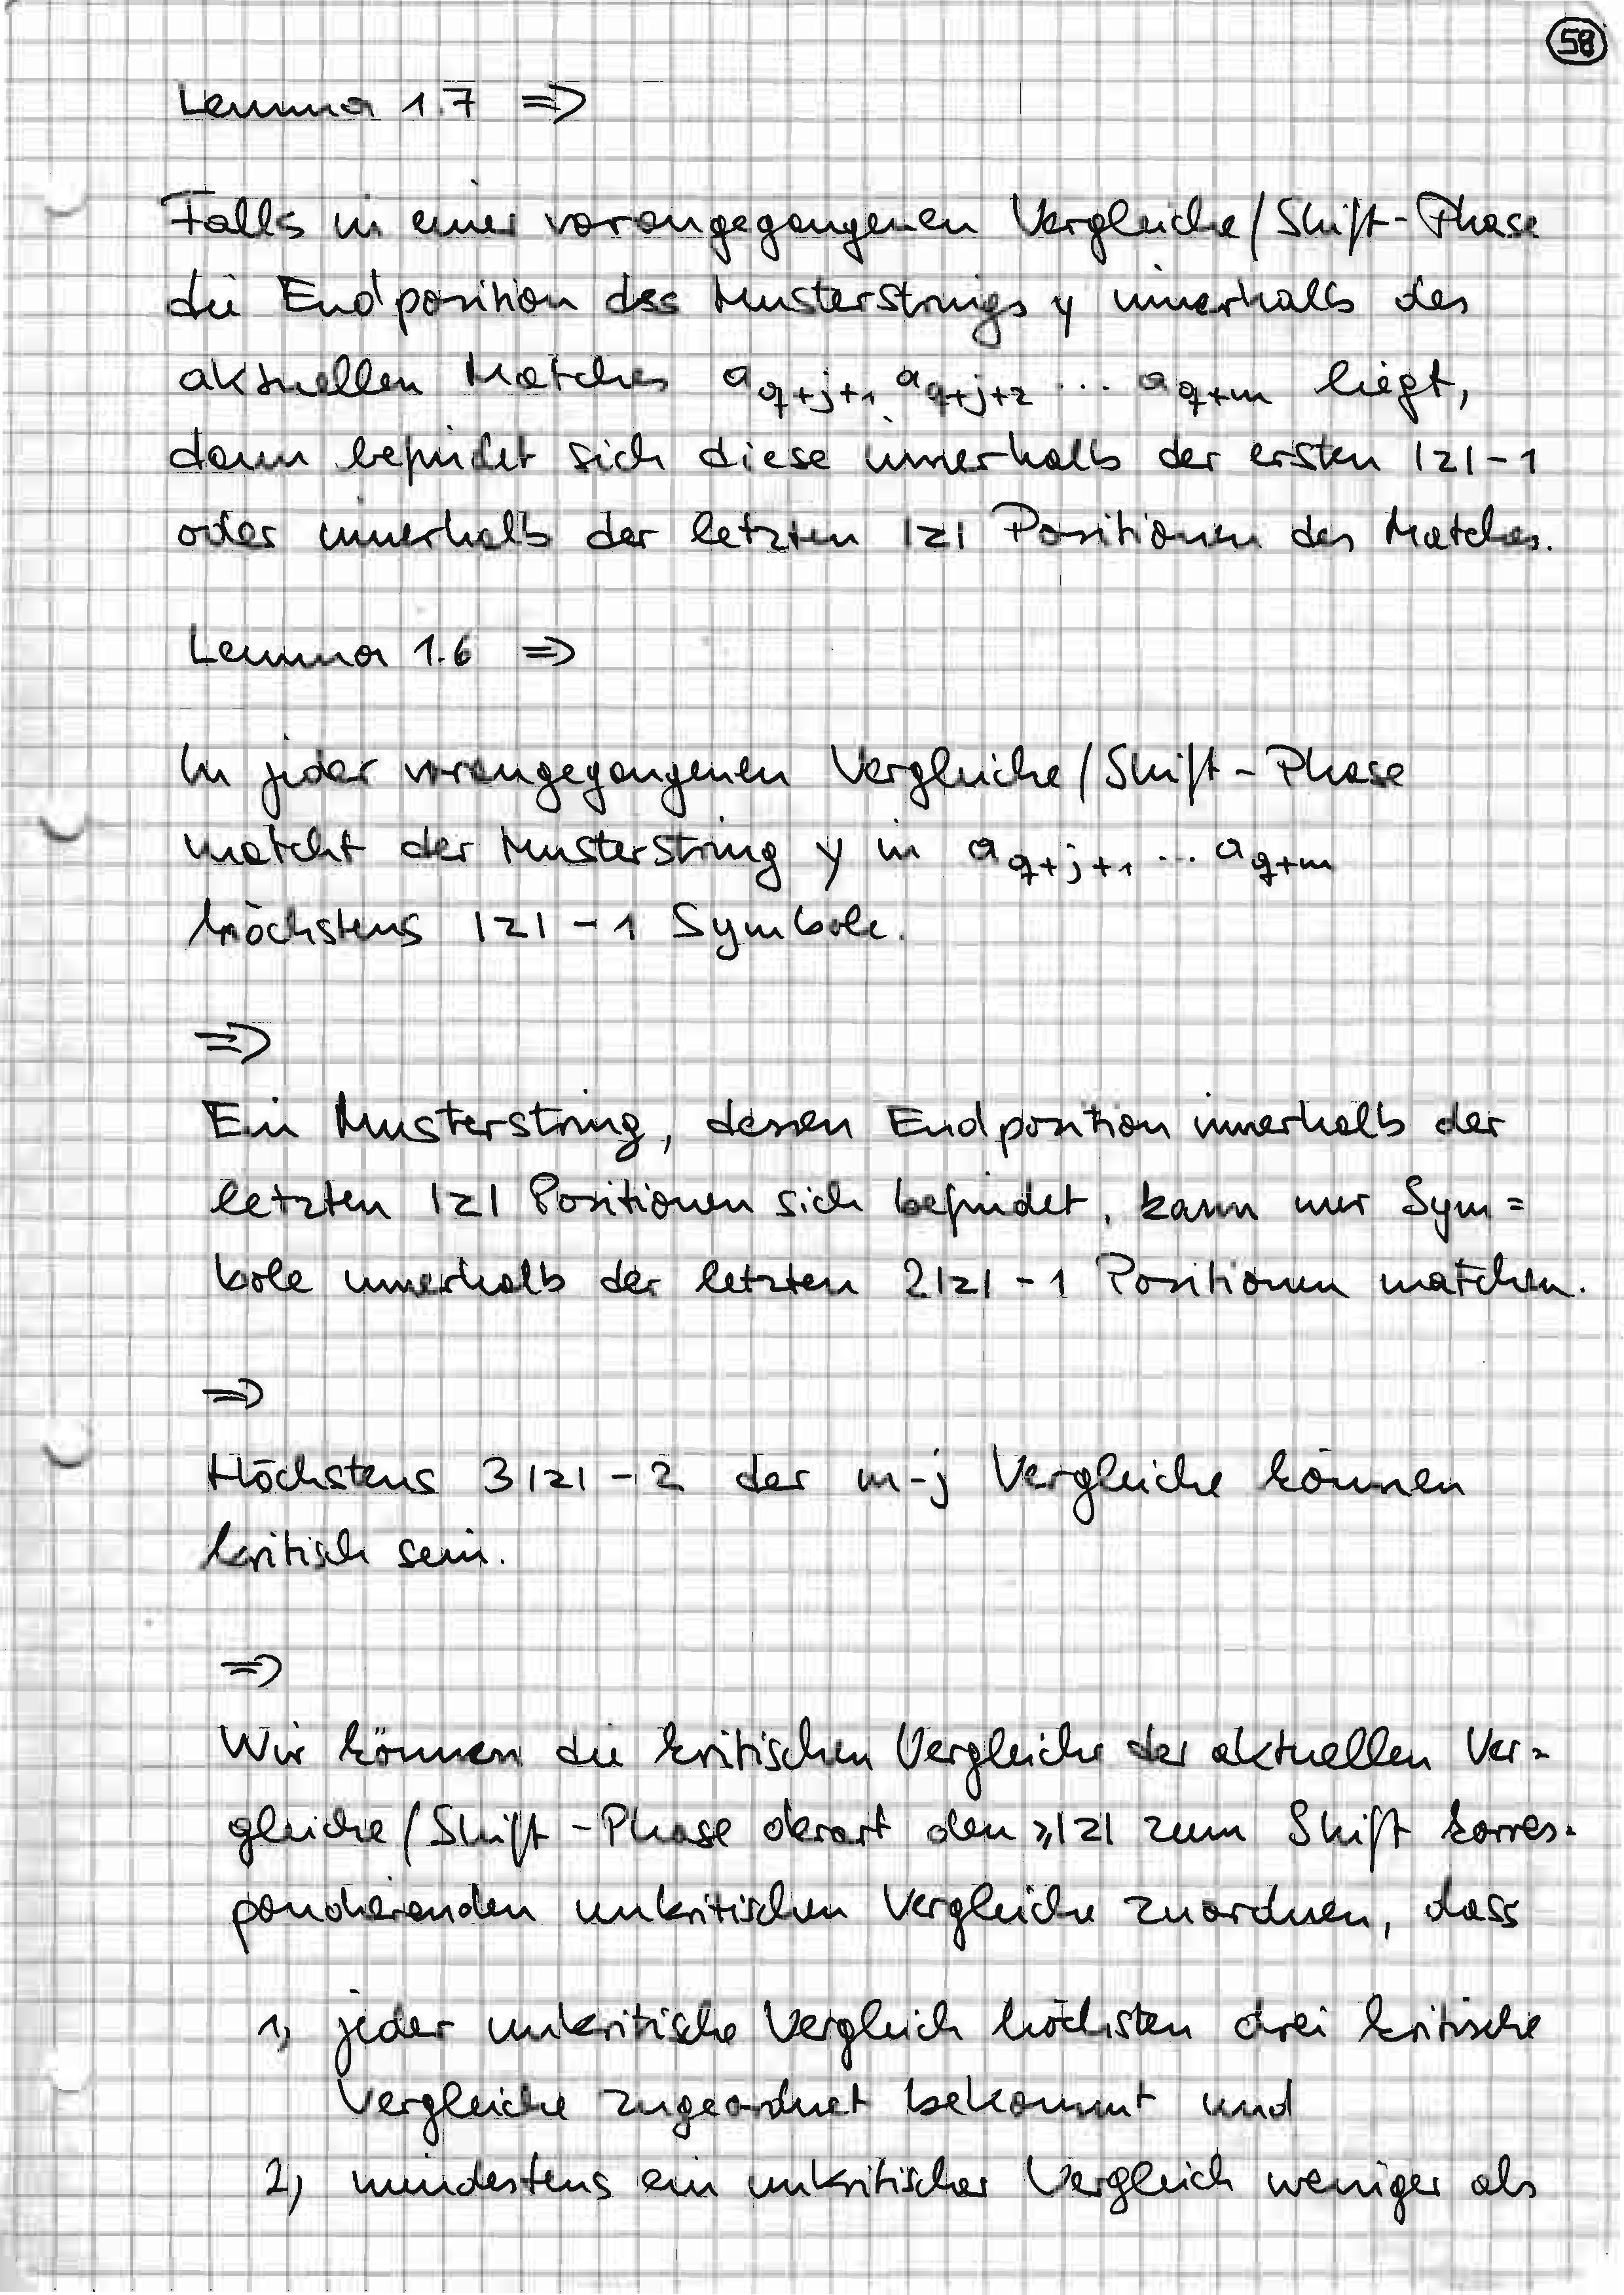 58
Lemma 1.7 ⇒
Falls in einer vorangegangenen Vergleiche/Shift-Phase
die Endposition des Musterstrings y innerhalb des
aktuellen Matches a_{q+j+1} a_{q+j+2} ... a_{q+m} liegt,
dann befindet sich diese innerhalb der ersten |z|-1
oder innerhalb der letzten |z| Positionen des Matches.
Lemma 1.6 ⇒
In jeder vorangegangenen Vergleiche/Shift-Phase
matcht der Musterstring y in a_{q+j+1} ... a_{q+m}
höchstens |z|-1 Symbole.
⇒
Ein Musterstring, dessen Endposition innerhalb der
letzten |z| Positionen sich befindet, kann nur Sym=
bole innerhalb der letzten 2|z|-1 Positionen matchen.
⇒
Höchstens 3|z|-2 der m-j Vergleiche können
kritisch sein.
⇒
Wir können die kritischen Vergleiche der aktuellen Ver=
gleiche/Shift-Phase derart den ≥|z| zum Shift korres=
pondierenden unkritischen Vergleiche zuordnen, dass
1) jeder unkritische Vergleich höchsten drei kritische
Vergleiche zugeordnet bekommt und
2) mindestens ein unkritischer Vergleich weniger als